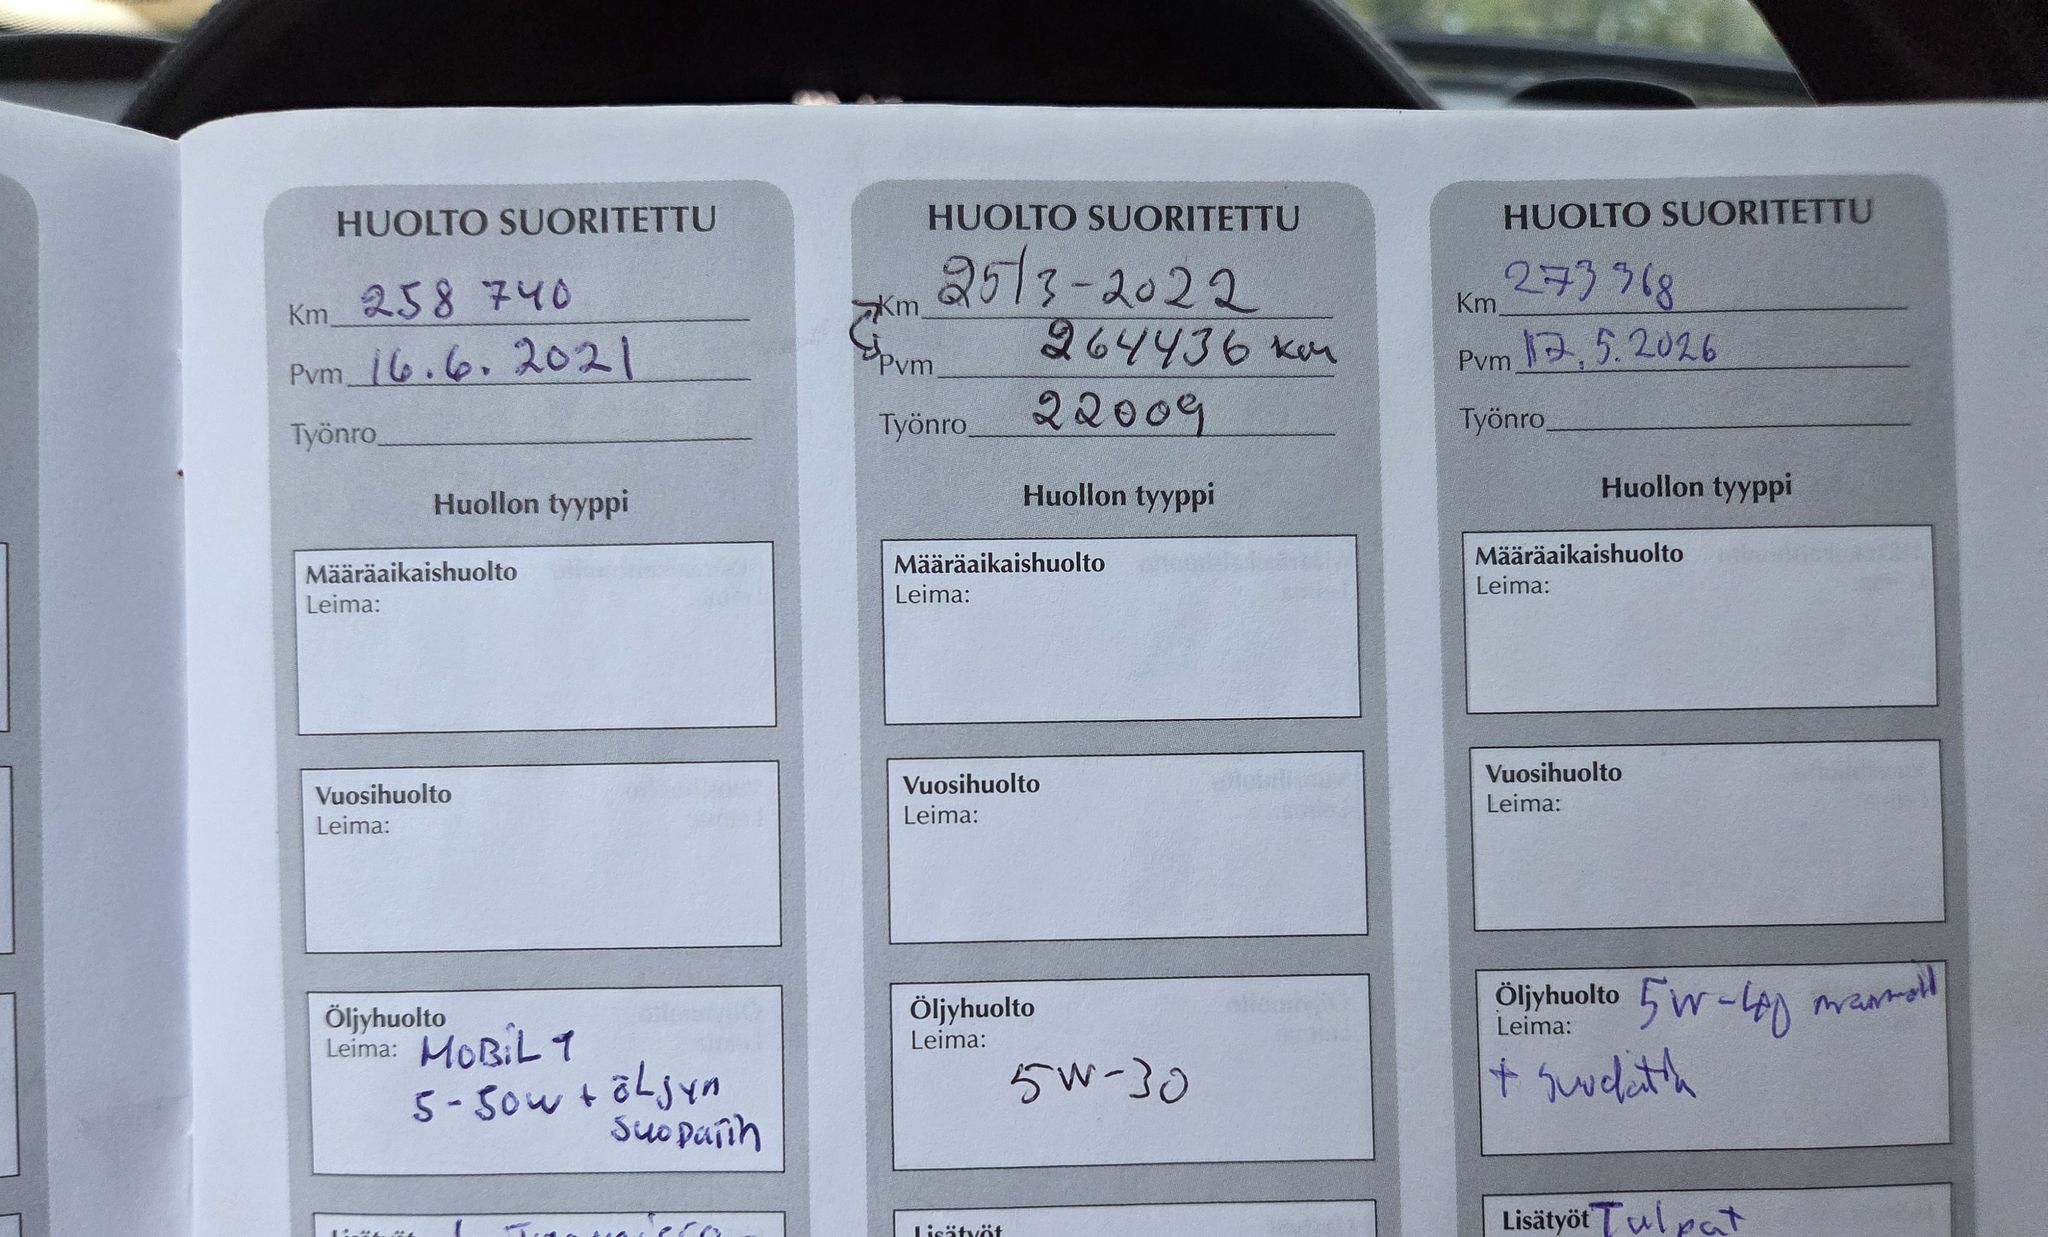 HUOLTO SUORITETTU
Km 258 740
Pvm 16.6.2021
Työnro
Huollon tyyppi
Määräaikaishuolto
Leima:
Vuosihuolto
Leima:
Öljyhuolto
Leima: MOBIL 1
5-50W + ÖLJYN
SUODATIN
HUOLTO SUORITETTU
Km 25/3-2022
Pvm 264436 km
Työnro 22009
Huollon tyyppi
Määräaikaishuolto
Leima:
Vuosihuolto
Leima:
Öljyhuolto
Leima:
5W-30
Lisätyöt
HUOLTO SUORITETTU
Km 273368
Pvm 17.5.2026
Työnro
Huollon tyyppi
Määräaikaishuolto
Leima:
Vuosihuolto
Leima:
Öljyhuolto 5W-40
Leima:
+ suodatin
Lisätyöt Tulpat